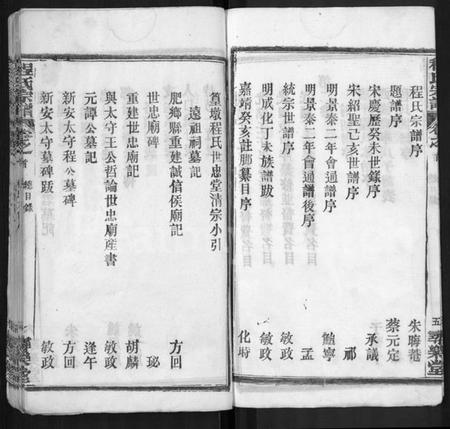 程氏宗譜 卷之首
五 尋樂堂
程氏宗譜序 朱晦菴
題譜序 蔡元定
宋慶歷癸未世錄序 承議
宋紹聖己亥世譜序 祁
明景泰二年會通譜序 鮑寧
明景泰二年會通譜後序 孟
統宗世譜序 敏政
明成化丁未族譜跋 敏政
嘉靖癸亥註腳纂目序 化時
篁墩程氏世忠堂清宗小引
遠祖祠墓記
肥鄉縣重建誠信侯廟記 方回
世忠廟碑 珌
重建世忠廟記 胡麟
與太守王公哲論世忠廟産書 敏政
元譚公墓記 逢午
新安太守程公墓碑 方回
新安太守墓碑跋 敏政
程氏宗譜 卷之首 總目錄